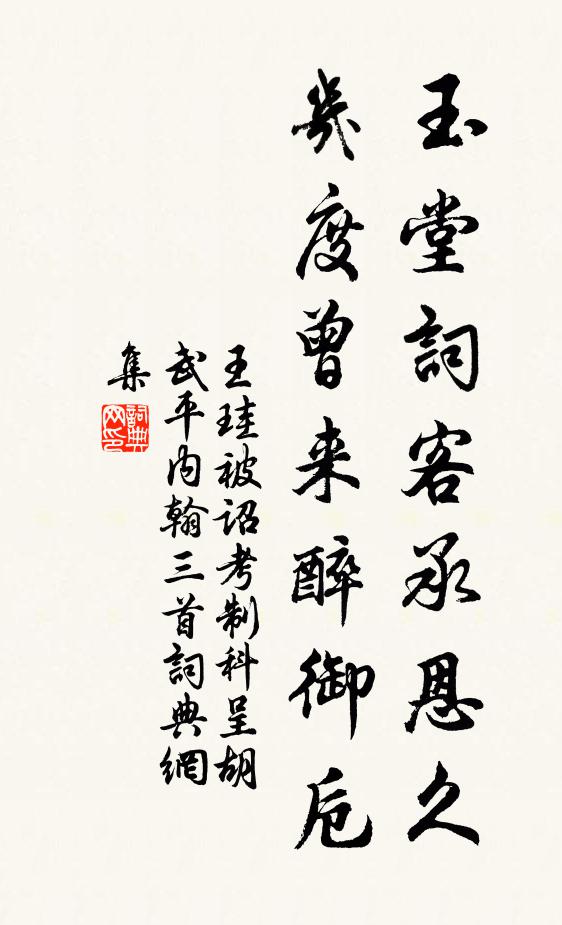 玉堂詞客承恩久
幾度曾来醉御卮
王珪被诏考制科呈胡
武平内翰三首詞典網
集
詞典网印